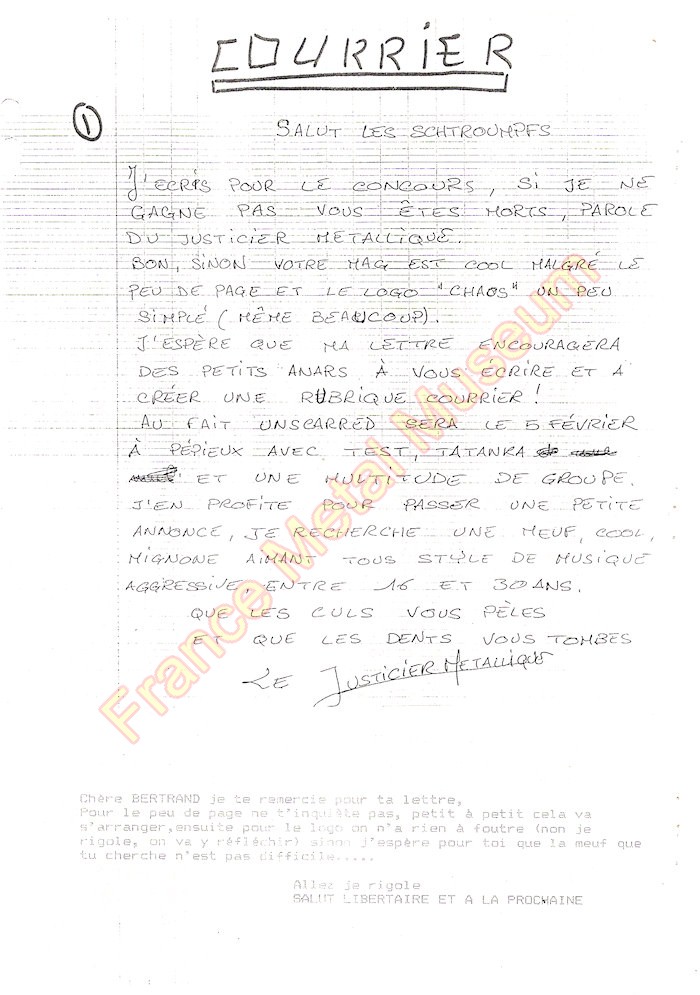 COURRIER
1
SALUT LES SCHTROUMPFS
J'ECRIS POUR LE CONCOURS, SI JE NE
GAGNE PAS VOUS ÊTES MORTS, PAROLE
DU JUSTICIER METALLIQUE.
BON, SINON VOTRE MAG EST COOL MALGRÉ LE
PEU DE PAGE ET LE LOGO "CHAOS" UN PEU
SIMPLE (MÊME BEAUCOUP).
J'ESPÈRE QUE MA LETTRE ENCOURAGERA
DES PETITS ANARS À VOUS ÉCRIRE ET A
CRÉER UNE RUBRIQUE COURRIER !
AU FAIT UNSCARRED SERA LE 5 FÉVRIER
À PÉPIEUX AVEC TEST, TATANKA
ET UNE MULTITUDE DE GROUPE.
J'EN PROFITE POUR PASSER UNE PETITE
ANNONCE, JE RECHERCHE UNE MEUF, COOL,
MIGNONE AIMANT TOUS STYLE DE MUSIQUE
AGGRESSIVE, ENTRE 16 ET 30 ANS.
QUE LES CULS VOUS PÈLES
ET QUE LES DENTS VOUS TOMBES
LE JUSTICIER METALLIQUE
Chère BERTRAND je te remercie pour ta lettre,
Pour le peu de page ne t'inquiète pas, petit à petit cela va
s'arranger,ensuite pour le logo on n'a rien à foutre (non je
rigole, on va y réfléchir) sinon j'espère pour toi que la meuf que
tu cherche n'est pas difficile.....
Allez je rigole
SALUT LIBERTAIRE ET A LA PROCHAINE
France Metal Museum